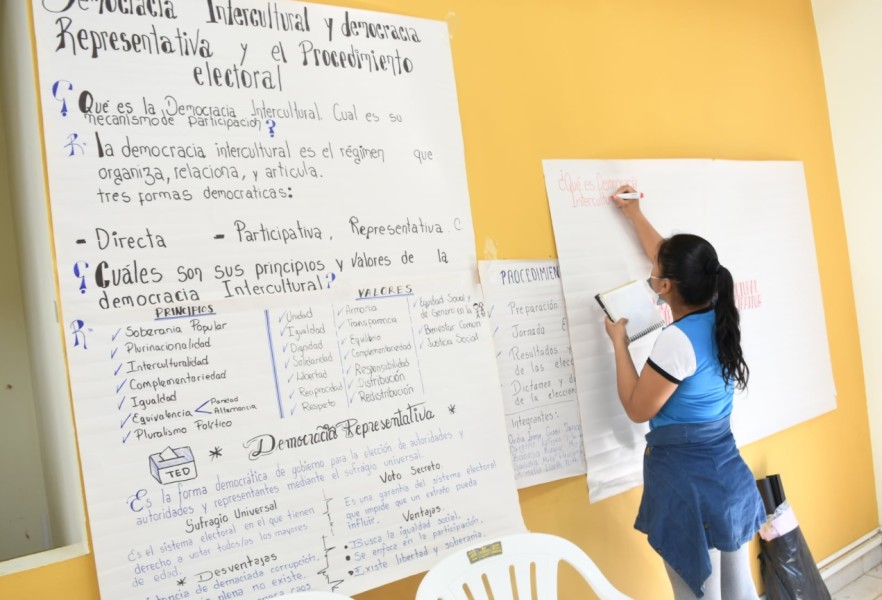 Democracia Intercultural y democracia
Representativa y el Procedimiento
electoral
¿ Qué es la Democracia Intercultural. Cual es su
mecanismo de participación?
R. la democracia intercultural es el régimen que
organiza, relaciona, y articula.
tres formas democraticas:
- Directa - Participativa. Representativa. C
¿ Cuáles son sus principios y valores de la
democracia Intercultural?
R. PRINCIPIOS
✓ Soberania Popular
✓ Plurinacionalidad
✓ Interculturalidad
✓ Complementariedad
✓ Igualdad
✓ Equivalencia < Paridad
Alternancia
✓ Pluralismo Político
VALORES
✓ Unidad
✓ Igualdad
✓ Dignidad
✓ Solidaridad
✓ Libertad
✓ Reciprocidad
✓ Respeto
✓ Armonia
✓ Transparencia
✓ Equilibrio
✓ Complementariedad
✓ Responsabilidad
✓ Distribución
✓ Redistribución
✓ Equidad Social y
de Genero en la
✓ Bienestar Común
✓ Justicia Social
* Democracia Representativa *
TED
Es la forma democrática de gobierno para la elección de autoridades y
autoridades y representantes mediante el sufragio universal.
Sufragio Universal
Es el sistema electoral en el que tienen
derecho a votar todos/as los mayores
de edad.
* Desventajas
demaciada corrupción.
plena no existe.
caos
Voto Secreto.
Es una garantia del sistema electoral
que impide que un extraño pueda
influir.
Ventajas.
• Busca la igualdad social.
• Se enfoca en la participación.
• Existe libertad y soberania.
PROCEDIMIEN
✓ Preparación
✓ Jornada E
✓ Resultados y
de las elec
✓ Dictamen y d
de la eleccion
Integrantes:
¿Qué es Democracia
Intercultu